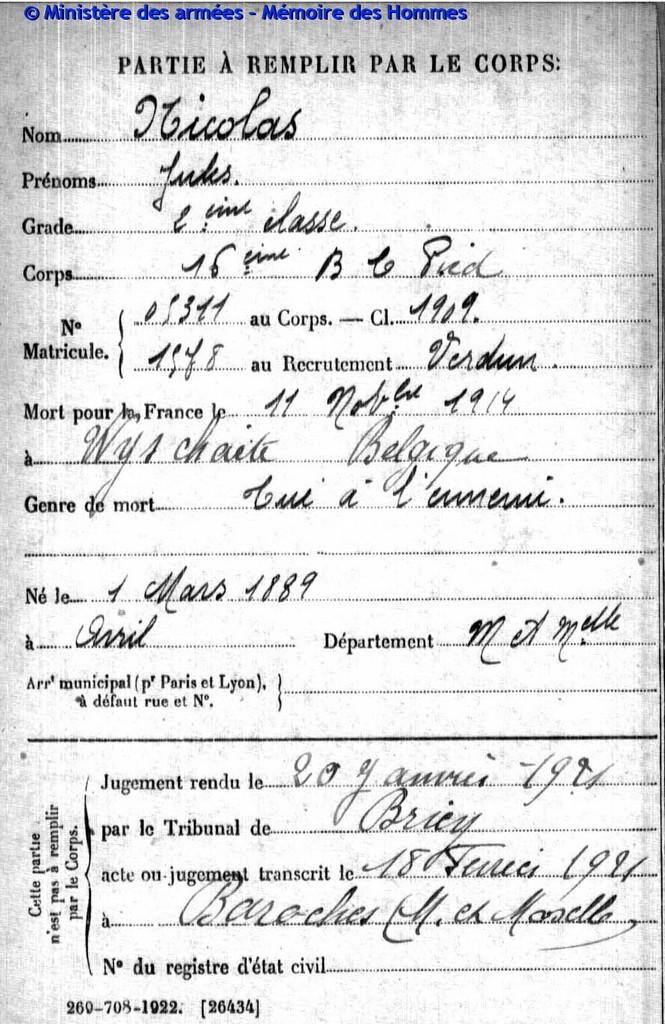 © Ministère des armées - Mémoire des Hommes
PARTIE À REMPLIR PAR LE CORPS:
Nom Nicolas
Prénoms Jules.
Grade 2ème classe.
Corps 16ème B C Pied
No Matricule. { 05311 au Corps. — Cl. 1909.
1578 au Recrutement Verdun.
Mort pour la France le 11 Novbre 1914
à Wyschaite Belgique
Genre de mort Tué à l'ennemi.
Né le 1 Mars 1889
à Avril Département M et Melle
Arrt municipal (pr Paris et Lyon), }
à défaut rue et No.
Cette partie n'est pas à remplir par le Corps.
Jugement rendu le 20 Janvier 1921
par le Tribunal de Briey
acte ou jugement transcrit le 18 Fevrier 1921
à Baroches (M. et Moselle)
No du registre d'état civil
260-708-1922. [26434]